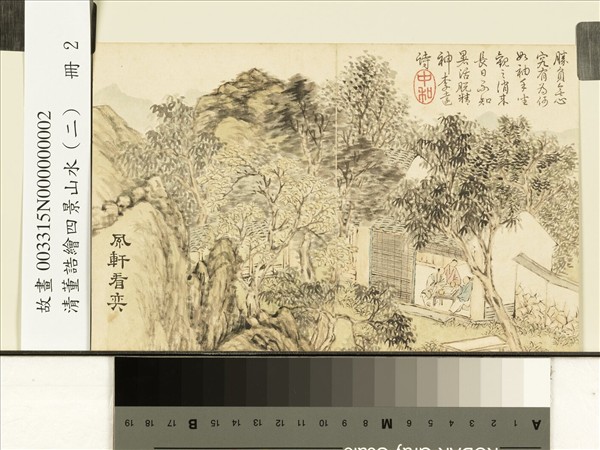 故畫 003315N000000002
清董誥繪四景山水（二） 冊 2
勝負無心
究有為何
如袖手坐
觀之消來
長日不知
暑活脫精
神李遠
詩
中和
風軒看奕
A 1 2 3 4 5 6 M 8 9 10 11 12 13 14 15 B 17 18 19